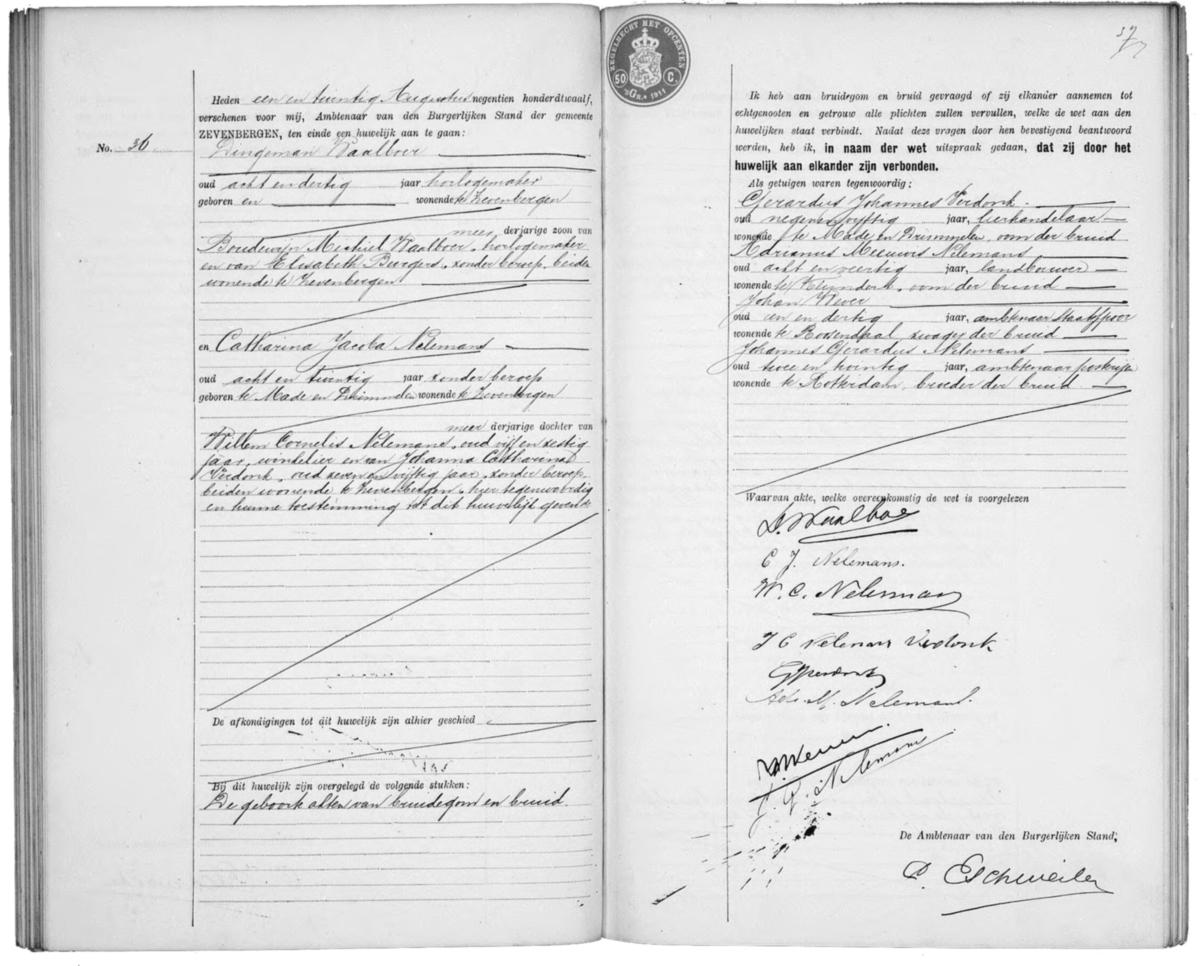 Heden een en twintig Augustus negentien honderdtwaalf,
verschenen voor mij, Ambtenaar van den Burgerlijken Stand der gemeente
ZEVENBERGEN, ten einde een huwelijk aan te gaan:
No. 36
Dingeman Waalboer
oud acht en dertig jaar horlogemaker
geboren en wonende te Zevenbergen
meerderjarige zoon van
Boudewijn Michiel Waalboer, horlogemaker
en van Elisabeth Burgers, zonder beroep, beiden
wonende te Zevenbergen
en Catharina Jacoba Nelemans
oud acht en twintig jaar zonder beroep
geboren te Made en Drimmelen wonende te Zevenbergen
meerderjarige dochter van
Willem Cornelis Nelemans, oud vijf en zestig
jaar, winkelier en van Johanna Catharina
Verdonk, oud zeven en vijftig jaar, zonder beroep
beiden wonende te Zevenbergen, hier tegenwoordig
en hunne toestemming tot dit huwelijk gevende
De afkondigingen tot dit huwelijk zijn alhier geschied
Bij dit huwelijk zijn overgelegd de volgende stukken:
De geboorteakten van bruidegom en bruid.
ZEGELRECHT MET OPCENTEN
50 C.
GR. 1911
37
Ik heb aan bruidegom en bruid gevraagd of zij elkander aannemen tot
echtgenooten en getrouw alle plichten zullen vervullen, welke de wet aan den
huwelijken staat verbindt. Nadat deze vragen door hen bevestigend beantwoord
werden, heb ik, in naam der wet uitspraak gedaan, dat zij door het
huwelijk aan elkander zijn verbonden.
Als getuigen waren tegenwoordig:
Gerardus Johannes Verdonk
oud negen en vijftig jaar, bierhandelaar
wonende te Made en Drimmelen, oom der bruid
Adrianus Meeuwis Nelemans
oud acht en veertig jaar, landbouwer
wonende te Klundert, oom der bruid
Johan Wever
oud een en dertig jaar, ambtenaar Staatsspoor
wonende te Rosendaal zwager der bruid
Johannes Gerardus Nelemans
oud twee en twintig jaar, ambtenaar posterijen
wonende te Rotterdam, broeder der bruid
Waarvan akte, welke overeenkomstig de wet is voorgelezen
D. Waalboer
C J. Nelemans.
W. C. Nelemans
J C Nelemans Verdonk
GJVerdonk
Adr. M. Nelemans.
J. G. Nelemans
De Ambtenaar van den Burgerlijken Stand,
P. Eschweiler